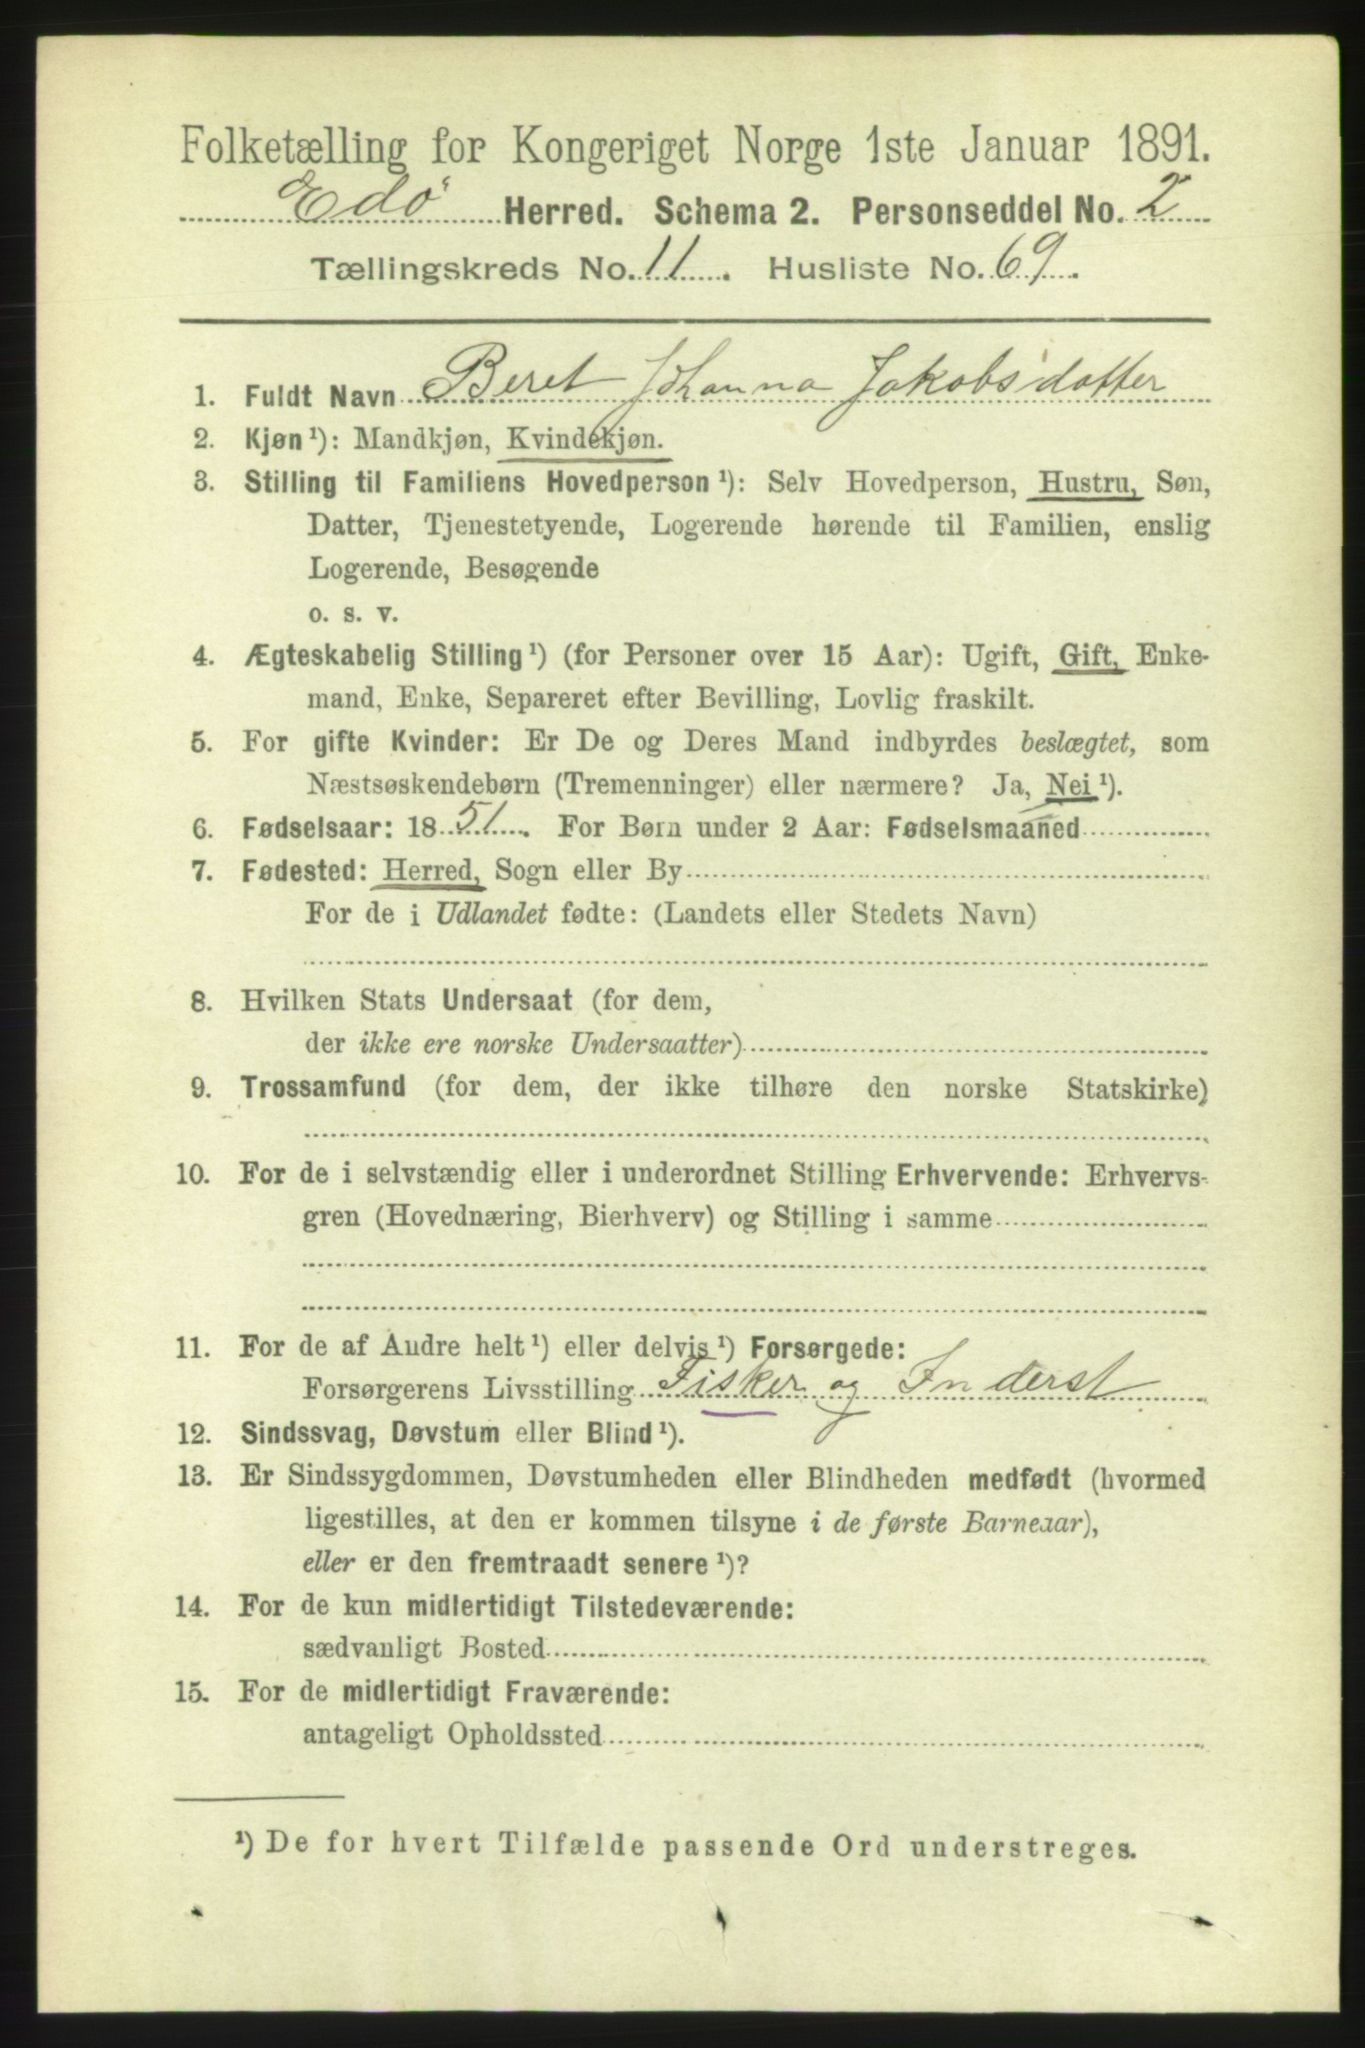 Folketælling for Kongeriget Norge 1ste Januar 1891.
Edø Herred. Schema 2. Personseddel No. 2
Tællingskreds No. 11. Husliste No. 69.
1. Fuldt Navn Beret Johanna Jakobsdatter
2. Kjøn¹): Mandkjøn, Kvindekjøn.
3. Stilling til Familiens Hovedperson¹): Selv Hovedperson, Hustru, Søn,
Datter, Tjenestetyende, Logerende hørende til Familien, enslig
Logerende, Besøgende
o. s. v.
4. Ægteskabelig Stilling¹) (for Personer over 15 Aar): Ugift, Gift, Enke-
mand, Enke, Separeret efter Bevilling, Lovlig fraskilt.
5. For gifte Kvinder: Er De og Deres Mand indbyrdes beslægtet, som
Næstsøskendebørn (Tremenninger) eller nærmere? Ja, Nei¹).
6. Fødselsaar: 1851. For Børn under 2 Aar: Fødselsmaaned
7. Fødested: Herred, Sogn eller By
For de i Udlandet fødte: (Landets eller Stedets Navn)
8. Hvilken Stats Undersaat (for dem,
der ikke ere norske Undersaatter)
9. Trossamfund (for dem, der ikke tilhøre den norske Statskirke)
10. For de i selvstændig eller i underordnet Stilling Erhvervende: Erhvervs-
gren (Hovednæring, Bierhverv) og Stilling i samme
11. For de af Andre helt¹) eller delvis¹) Forsørgede:
Forsørgerens Livsstilling Fisker og Inderst
12. Sindssvag, Døvstum eller Blind¹).
13. Er Sindssygdommen, Døvstumheden eller Blindheden medfødt (hvormed
ligestilles, at den er kommen tilsyne i de første Barneaar),
eller er den fremtraadt senere¹)?
14. For de kun midlertidigt Tilstedeværende:
sædvanligt Bosted
15. For de midlertidigt Fraværende:
antageligt Opholdssted
¹) De for hvert Tilfælde passende Ord understreges.